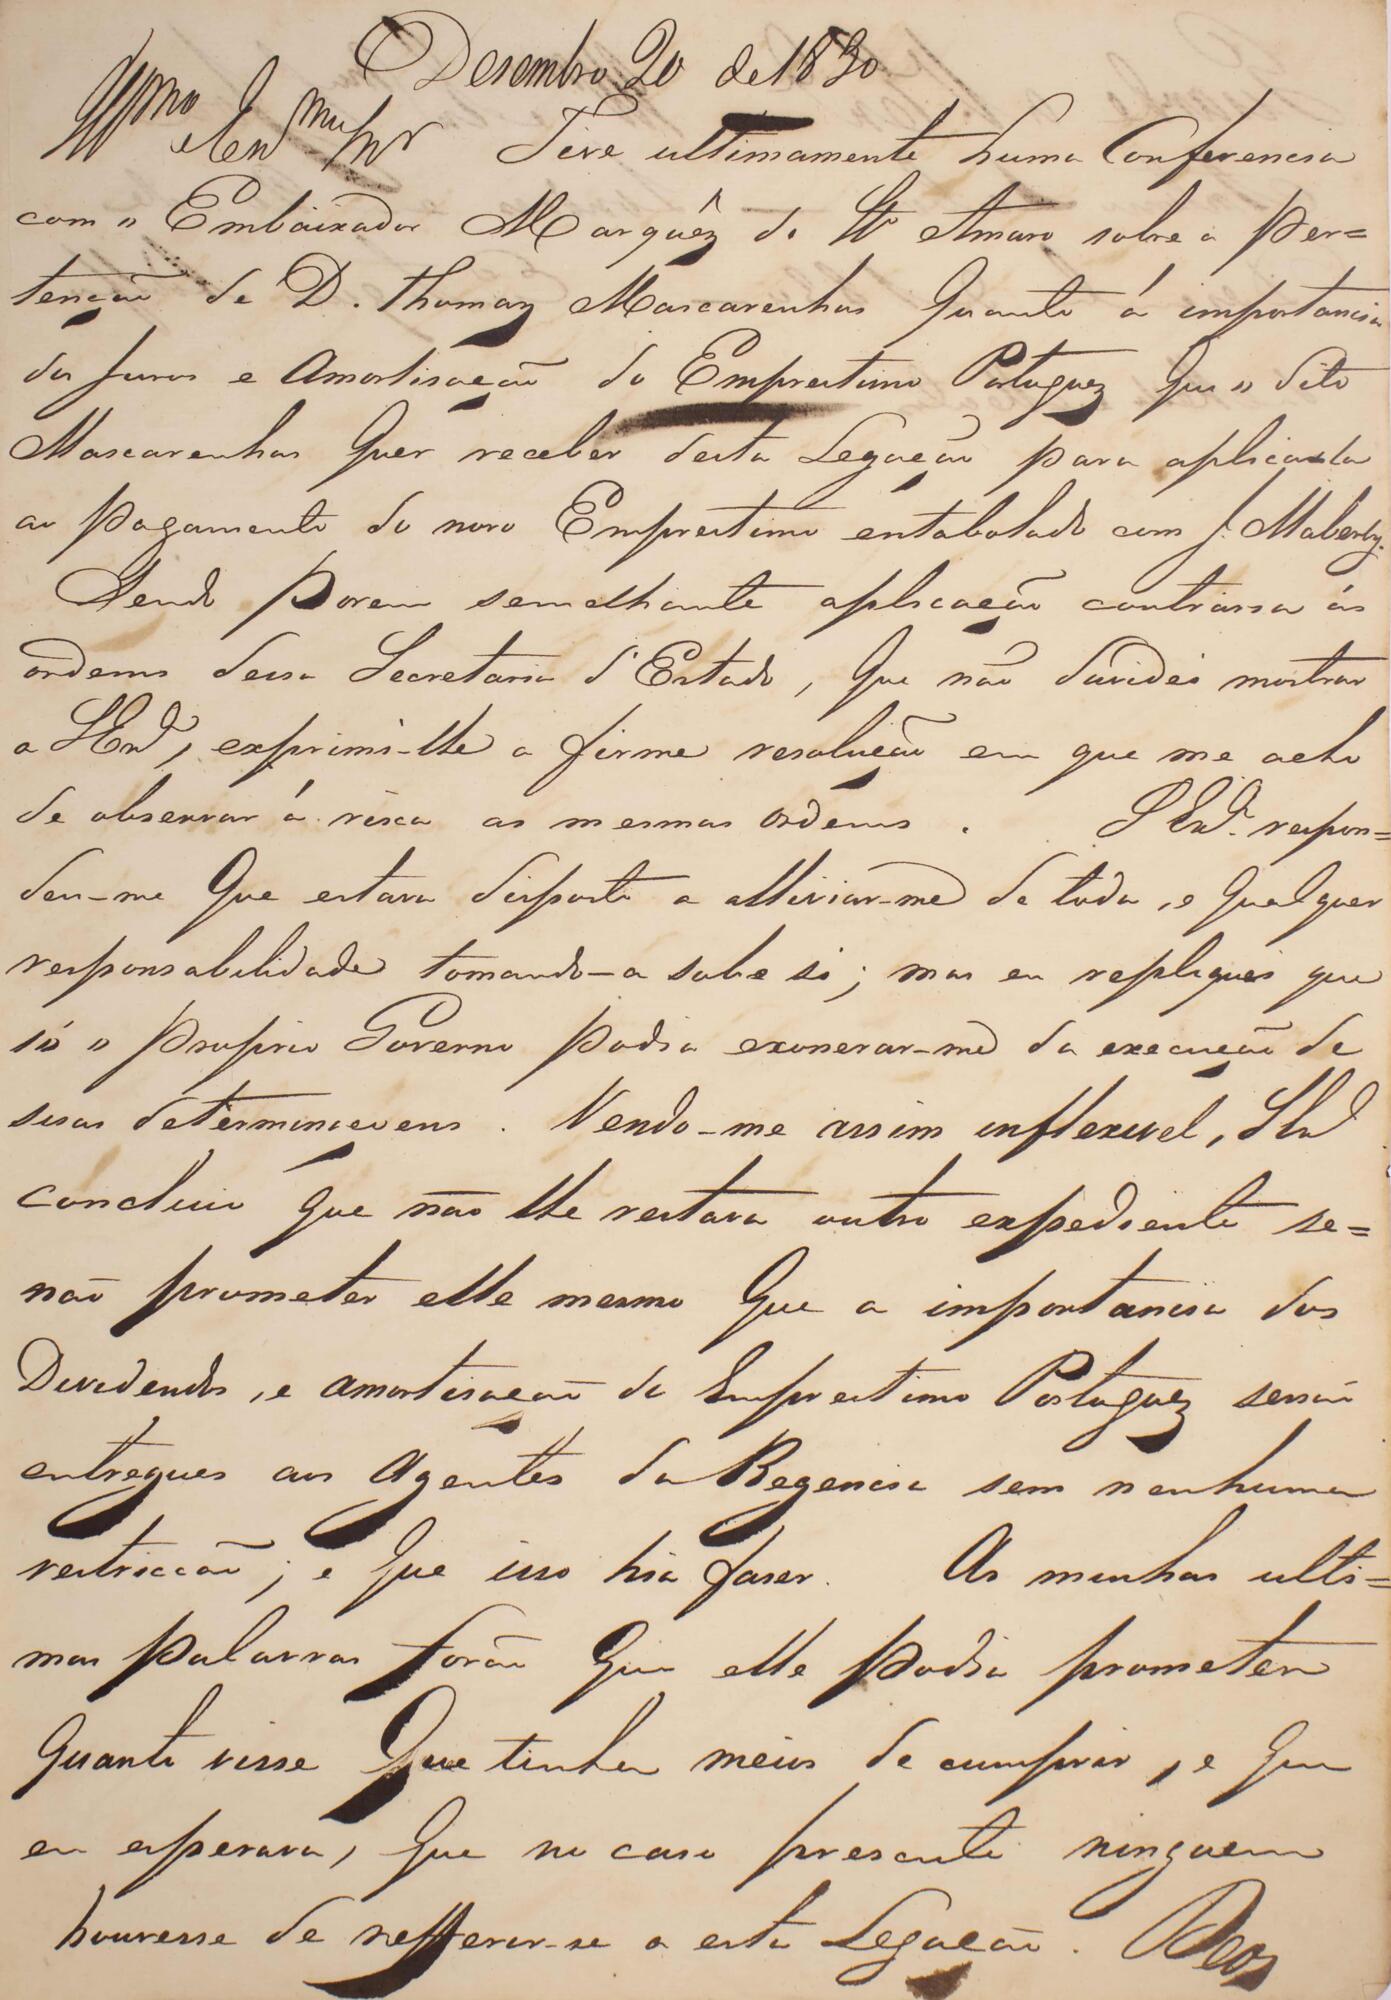 Desembro 20 de 1830
Illmo e Exmo Snr Tive ultimamente huma Conferencia
com o Embaixador Marquêz de Sto Amaro sobre a per=
tenção de D. Thomaz Mascarenhas quanto á importancia
dos juros e Amortisação do Emprestimo Portuguez que o dito
Mascarenhas quer receber desta Legação para aplicalla
ao pagamento do novo Emprestimo entabolado com J. Maberly.
Sendo porem semelhante aplicação contraria ás
ordens dessa Secretaria d'Estado, que não duvidei mostrar
a S Exa, exprimi-lhe a firme resolução em que me acho
de observar á risca as mesmas ordens. S Exa. respon=
deu-me que estava disposto a alliviar-me de toda, e qualquer
responsabilidade tomando-a sobe si; mas eu repliquei que
só o proprio Governo podia exonerar-me da execução de
suas determinaçoens. Vendo-me assim inflexivel, S Exa
concluio que não lhe restava outro expediente se=
não prometer elle mesmo que a importancia dos
Dividendos, e amortisação do Emprestimo Portuguez serião
entregues aos Agentes da Regencia sem nenhuma
restricção; e que isso hia faser. As minhas ulti=
mas palavras forão que elle podia prometer
quanto visse que tinha meios de cumprir, e que
eu esperava, que no caso presente ninguem
houvesse de refferir-se a esta Legação. Deos